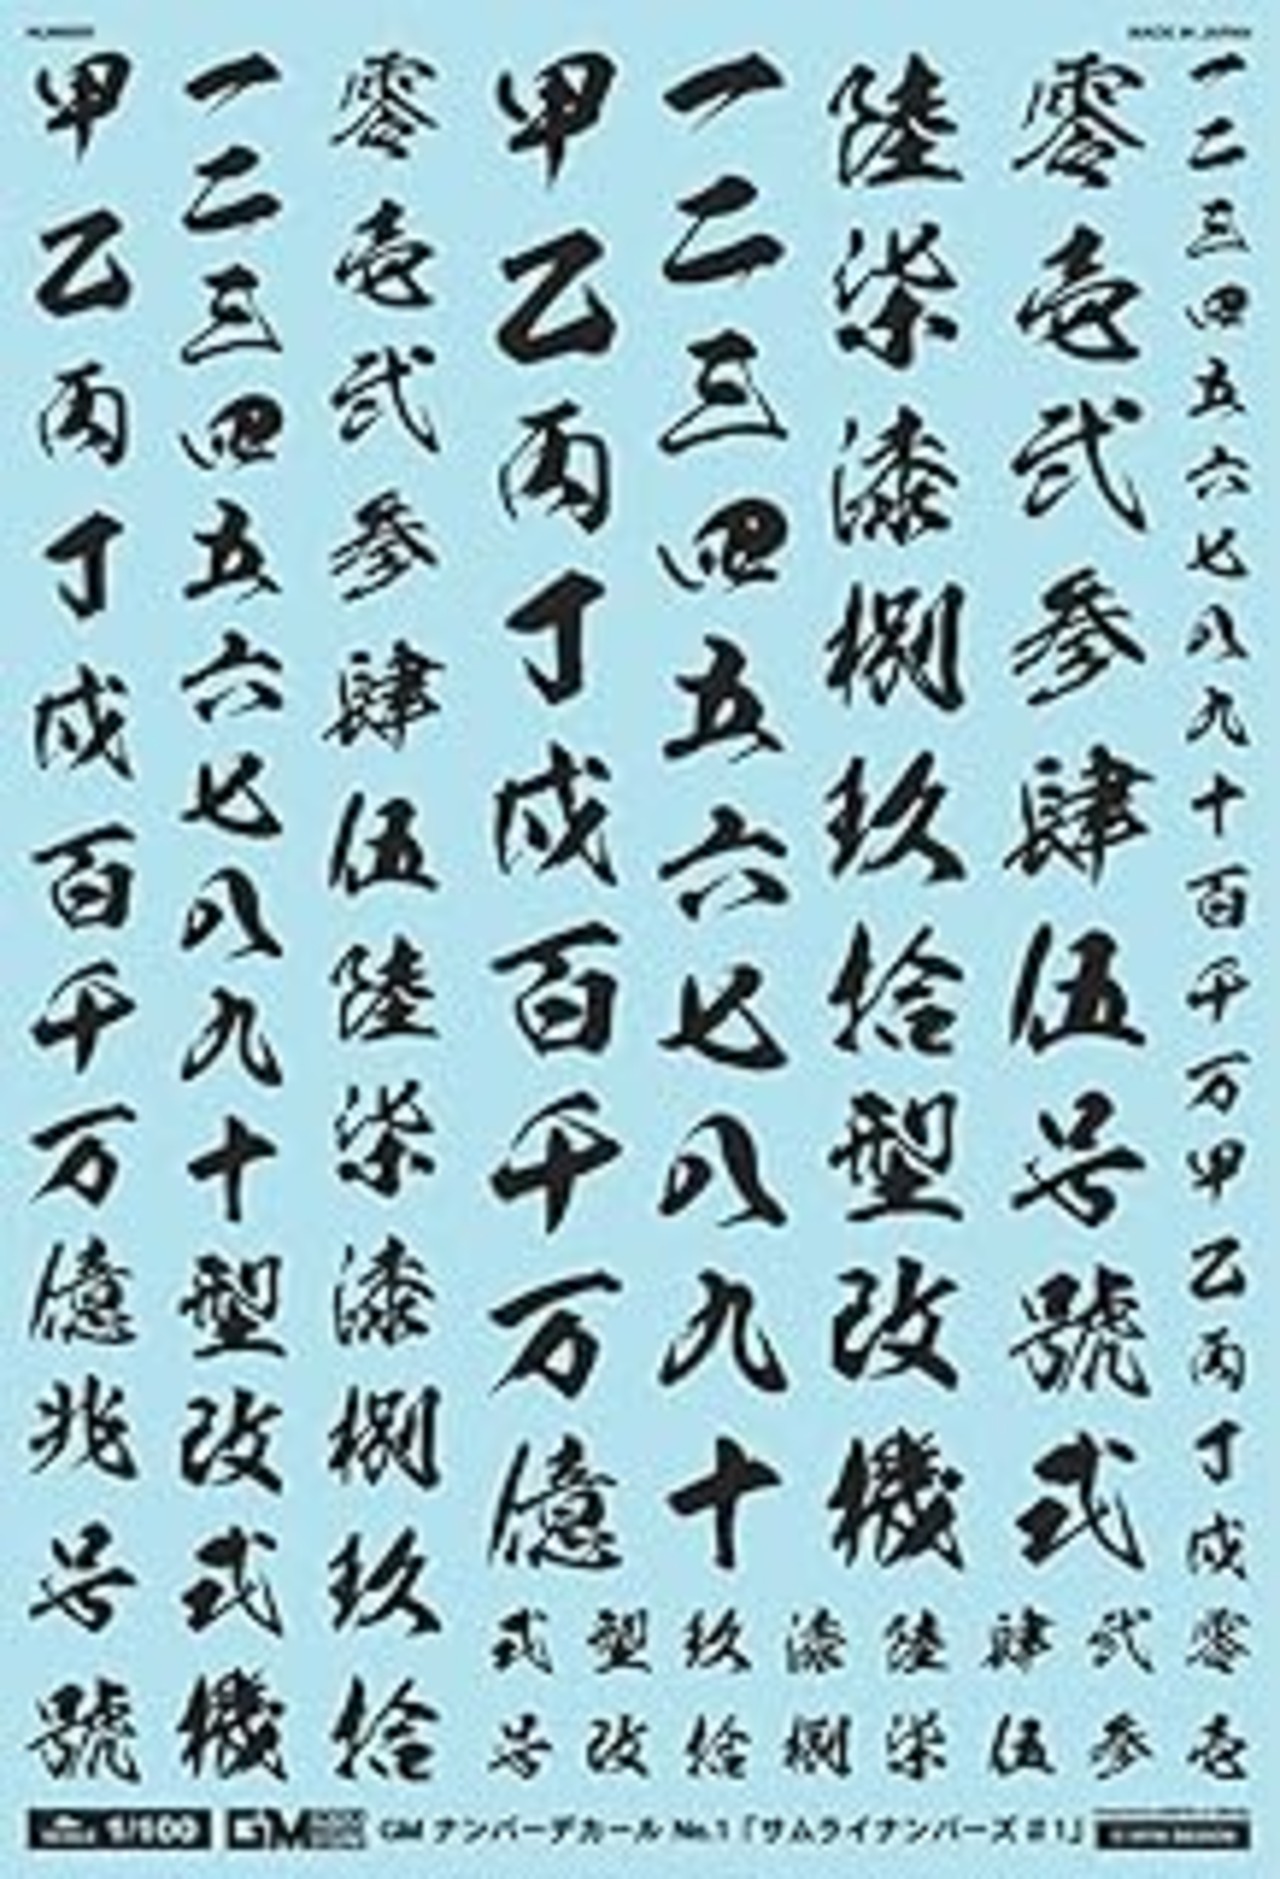 MADE IN JAPAN
一二三四五六七八九十百千万甲乙丙丁戊零壱
零壱弐参肆伍号號式
陸柒漆捌玖拾型改機
一二三四五六七八九十
甲乙丙丁戊百千万億
弐参
肆伍
陸柒
漆捌
玖拾
型改
式号
零壱弐参肆伍陸柒漆捌玖拾
一二三四五六七八九十型改式機
甲乙丙丁戊百千万億兆号號
1/100
GM ナンバーデカール No.1「サムライナンバーズ #1」